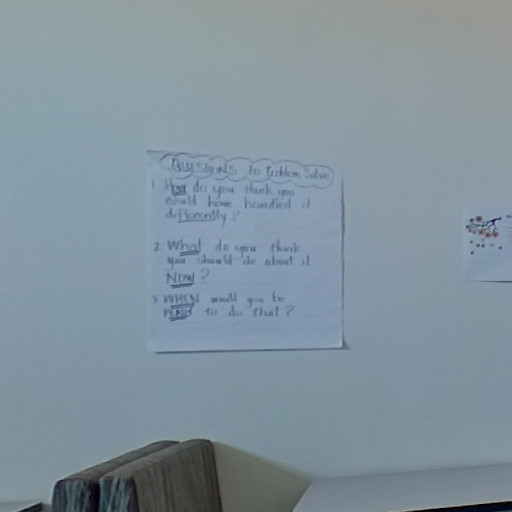 QUESTIONS to Problem Solve
1. How do you think you
could have handled it
differently?
2. What do you think
you should do about it
NOW?
3. WHEN would you be
READY to do that?